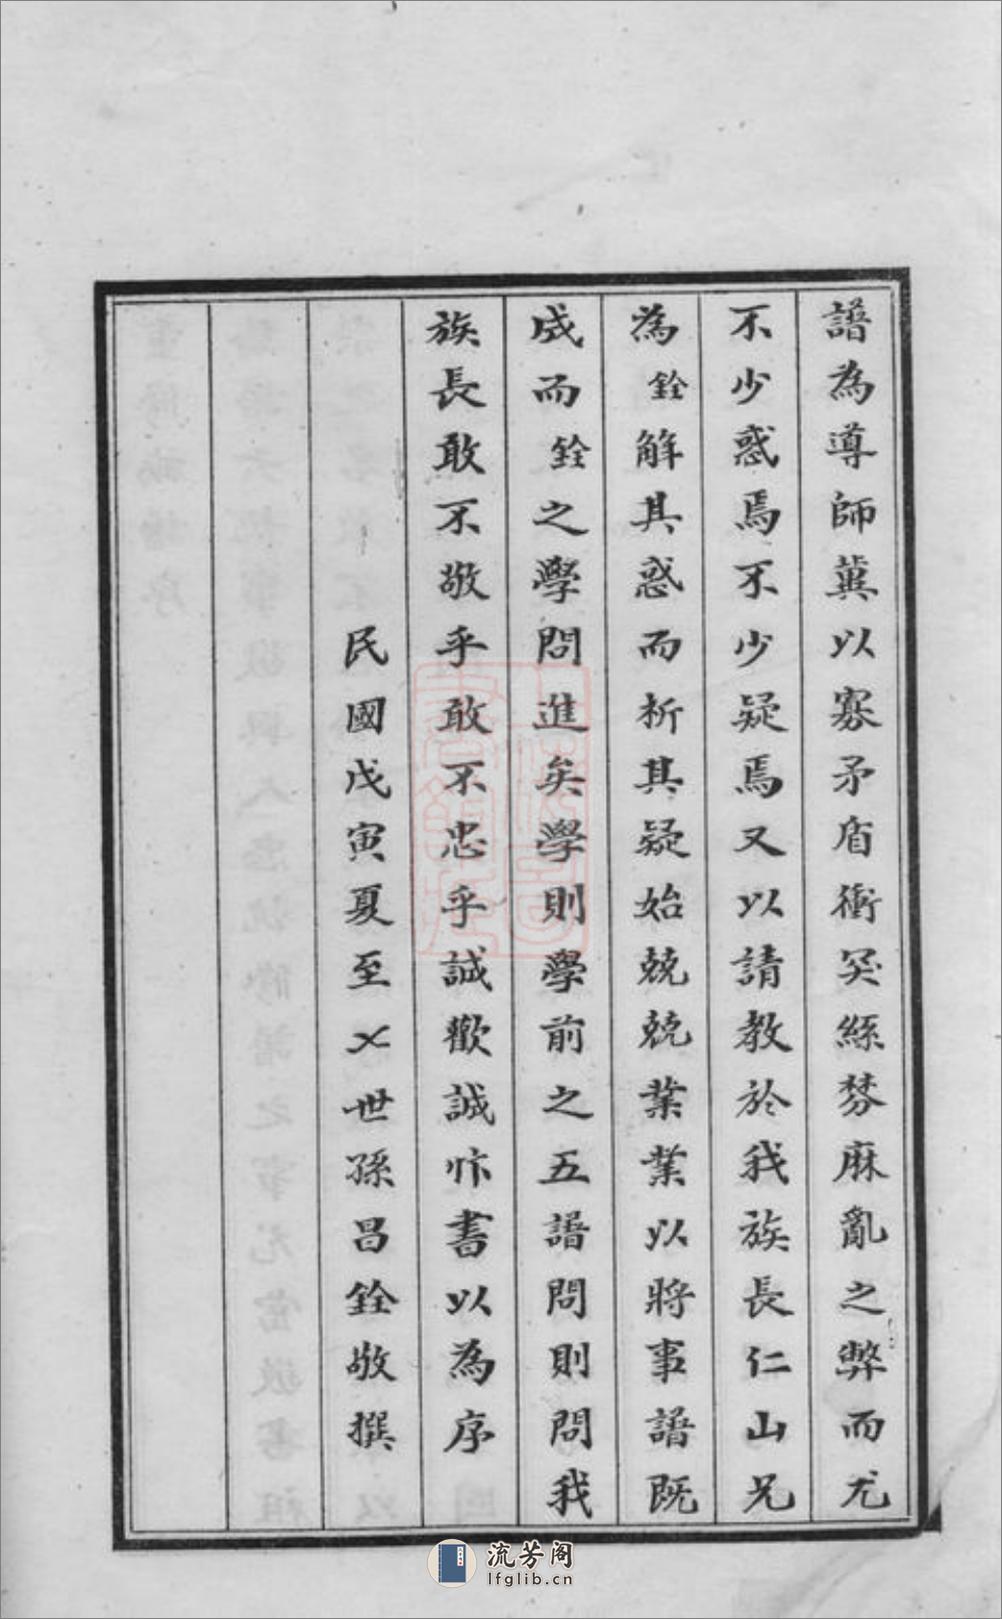 譜為導師冀以寡矛盾衝突絲棼麻亂之弊而尤
不少惑焉不少疑焉又以請教於我族長仁山兄
為銓解其惑而析其疑始兢兢業業以將事譜既
成而銓之學問進矣學則學前之五譜問則問我
族長敢不敬乎敢不忠乎誠歡誠忭書以為序
民國戊寅夏至乂世孫昌銓敬撰
流芳阁
lfglib.cn